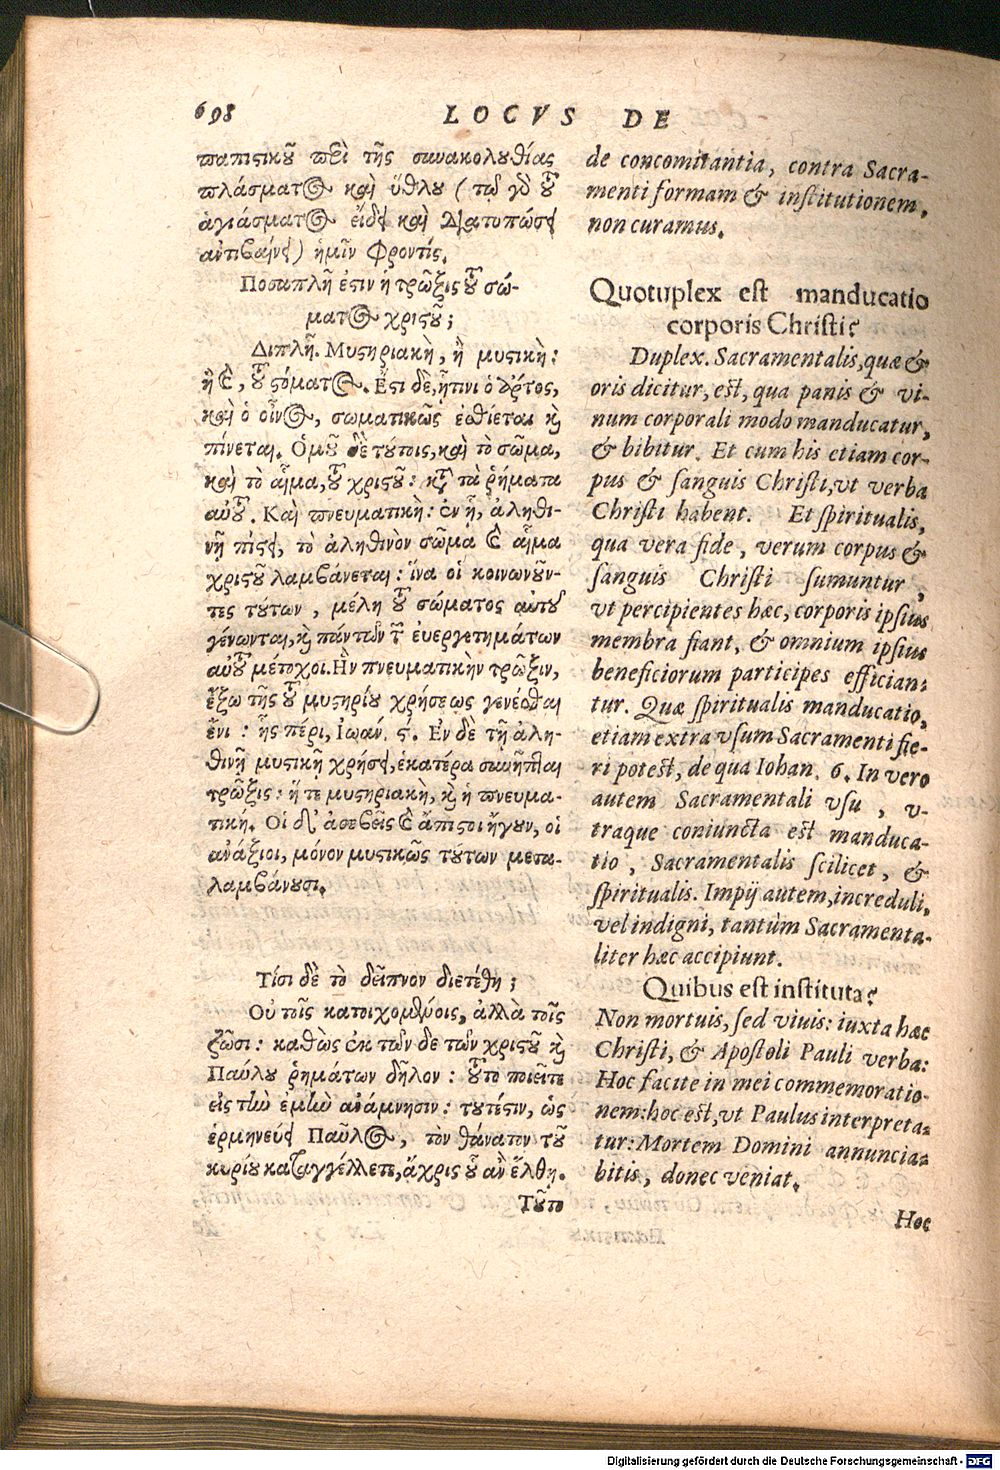 698
LOCVS DE
παπιστικοῦ περὶ τῆς συνακολουθίας
πλάσματος καὶ ὕθλου (τῷ γὸ τοῦ
ἁγιάσματος εἴδει καὶ διατυπώσει
ἀντιβαίνει) ἡμῖν φροντίς.
Ποσαπλῆ ἐστιν ἡ τρῶξις τοῦ σώ-
ματος χριστοῦ;
Διπλῆ. Μυστηριακὴ, ἢ μυστική:
ἢ καὶ, τοῦ στόματος. Ἔστι δὲ, ᾗτινι ὁ ἄρτος,
καὶ ὁ οἶνος, σωματικῶς ἐσθίεται καὶ
πίνεται. Ὁμοῦ δὲ τούτοις, καὶ τὸ σῶμα,
καὶ τὸ αἷμα, τοῦ χριστοῦ: κατὰ τὰ ῥήματα
αὐτοῦ. Καὶ πνευματικὴ: ἐν ᾗ, ἀληθι-
νῇ πίστει, τὸ ἀληθινὸν σῶμα καὶ αἷμα
χριστοῦ λαμβάνεται: ἵνα οἱ κοινωνοῦν-
τες τούτων, μέλη τοῦ σώματος αὐτοῦ
γένωνται, καὶ πάντων τῶν ἐυεργετημάτων
αὐτοῦ μέτοχοι. Ἣν πνευματικὴν τρῶξιν,
ἔξω τῆς τοῦ μυστηρίου χρήσεως γενέσθαι
ἔνι: ἧς πέρι, Ἰωάν. ϛ. Ἐν δὲ τῇ ἀλη-
θινῇ μυστικῇ χρήσει, ἑκατέρα συνῆπται
τρῶξις: ἥ τε μυστηριακὴ, καὶ ἡ πνευμα-
τική. Οἱ δ' ἀσεβεῖς καὶ ἄπιστοι ἤγουν, οἱ
ἀνάξιοι, μόνον μυστικῶς τούτων μετα-
λαμβάνουσι.
Τίσι δὲ τὸ δεῖπνον διετέθη;
Οὐ τοῖς κατοιχομένοις, ἀλλὰ τοῖς
ζῶσι: καθὼς ἐκ τῶν δε τῶν χριστοῦ καὶ
Παύλου ῥημάτων δῆλον: τοῦτο ποιεῖτε
εἰς τὴν ἐμὴν ἀνάμνησιν: τουτέστιν, ὡς
ἑρμηνεύει Παῦλος, τὸν θάνατον τοῦ
κυρίου καταγγέλλετε, ἄχρις οὗ ἂν ἔλθῃ.
Τοῦτο
de concomitantia, contra Sacra-
menti formam & institutionem,
non curamus.
Quotuplex est manducatio
corporis Christi?
Duplex. Sacramentalis, quæ &
oris dicitur, est, qua panis & vi-
num corporali modo manducatur,
& bibitur. Et cum his etiam cor-
pus & sanguis Christi, vt verba
Christi habent. Et spiritualis,
qua vera fide, verum corpus &
sanguis Christi sumuntur,
vt percipientes hæc, corporis ipsius
membra fiant, & omnium ipsius
beneficiorum participes effician-
tur. Quæ spiritualis manducatio,
etiam extra vsum Sacramenti fie-
ri potest, de qua Iohan. 6. In vero
autem Sacramentali vsu, v-
traque coniuncta est manduca-
tio, Sacramentalis scilicet, &
spiritualis. Impij autem, increduli,
vel indigni, tantùm Sacramenta-
liter hæc accipiunt.
Quibus est instituta?
Non mortuis, sed viuis: iuxta hæc
Christi, & Apostoli Pauli verba:
Hoc facite in mei commemoratio-
nem: hoc est, vt Paulus interpreta-
tur: Mortem Domini annuncia-
bitis, donec veniat.
Hoc
Digitalisierung gefördert durch die Deutsche Forschungsgemeinschaft - DFG